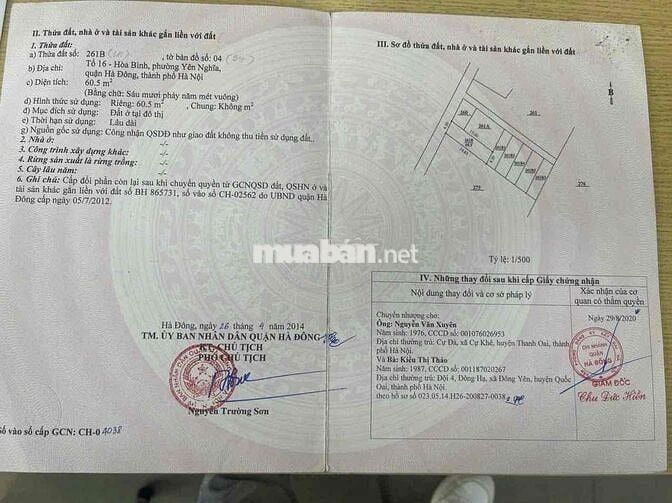 II. Thửa đất, nhà ở và tài sản khác gắn liền với đất
1. Thửa đất:
a) Thửa đất số: 261B, tờ bản đồ số: 04
b) Địa chỉ: Tổ 16 - Hòa Bình, phường Yên Nghĩa,
quận Hà Đông, thành phố Hà Nội
c) Diện tích: 60.5 m²
(Bằng chữ: Sáu mươi phảy năm mét vuông)
d) Hình thức sử dụng: Riêng: 60.5 m², Chung: Không m²
đ) Mục đích sử dụng: Đất ở tại đô thị
e) Thời hạn sử dụng: Lâu dài
g) Nguồn gốc sử dụng: Công nhận QSDĐ như giao đất không thu tiền sử dụng đất.
2. Nhà ở: -/-
3. Công trình xây dựng khác: -/-
4. Rừng sản xuất là rừng trồng: -/-
5. Cây lâu năm: -/-
6. Ghi chú: Cấp đổi phần còn lại sau khi chuyển quyền từ GCNQSD đất, QSHN ở và
tài sản khác gắn liền với đất số BH 865731, số vào sổ CH-02562 do UBND quận Hà
Đông cấp ngày 05/7/2012.
Hà Đông, ngày 26 tháng 4 năm 2014
TM. ỦY BAN NHÂN DÂN QUẬN HÀ ĐÔNG
KT. CHỦ TỊCH
PHÓ CHỦ TỊCH
Nguyễn Trường Sơn
Số vào sổ cấp GCN: CH-04038
III. Sơ đồ thửa đất, nhà ở và tài sản khác gắn liền với đất
B
260
261A
265
275
276
Tỷ lệ: 1/500
muaban.net
IV. Những thay đổi sau khi cấp Giấy chứng nhận
Nội dung thay đổi và cơ sở pháp lý
Xác nhận của cơ
quan có thẩm quyền
Chuyển nhượng cho:
Ông: Nguyễn Văn Xuyên
Năm sinh: 1976, CCCD số: 001076026953
Địa chỉ thường trú: Cự Đà, xã Cự Khê, huyện Thanh Oai, thành
phố Hà Nội.
Và Bà: Kiều Thị Thảo
Năm sinh: 1987, CCCD số: 001187020267
Địa chỉ thường trú: Đội 4, Đông Hạ, xã Đông Yên, huyện Quốc
Oai, thành phố Hà Nội.
theo hồ sơ số 023.05.14.H26-200827-0038
Ngày 29/8/2020
CHI NHÁNH
QUẬN
HÀ ĐÔNG
GIÁM ĐỐC
Chu Đức Hiển